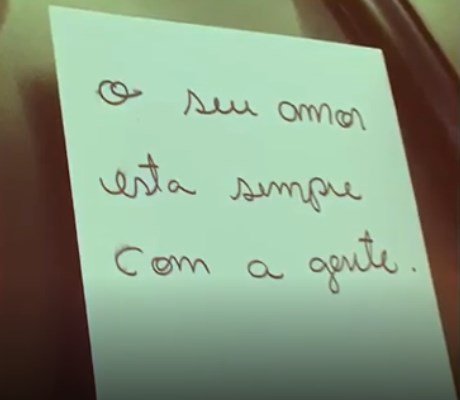 o seu amor
esta sempre
com a gente.